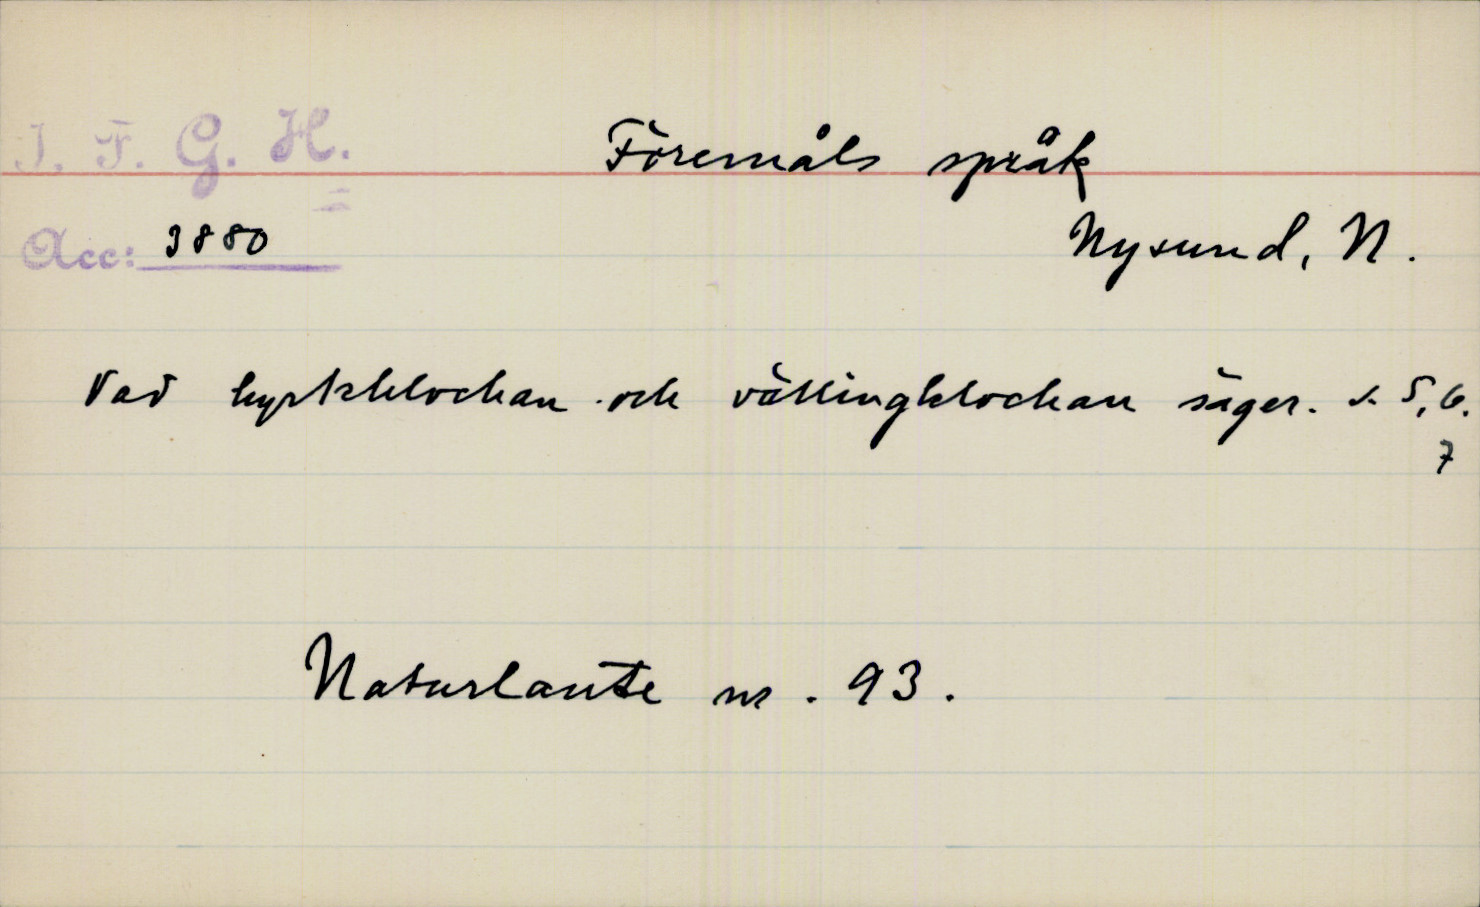 I. F. G. H.
Föremåls språk
Acc: 3880
Nysund, N.
Vad kyrkklockan och vällingklockan säger. s. 5, 6.
7
Naturlaute nr. 93.